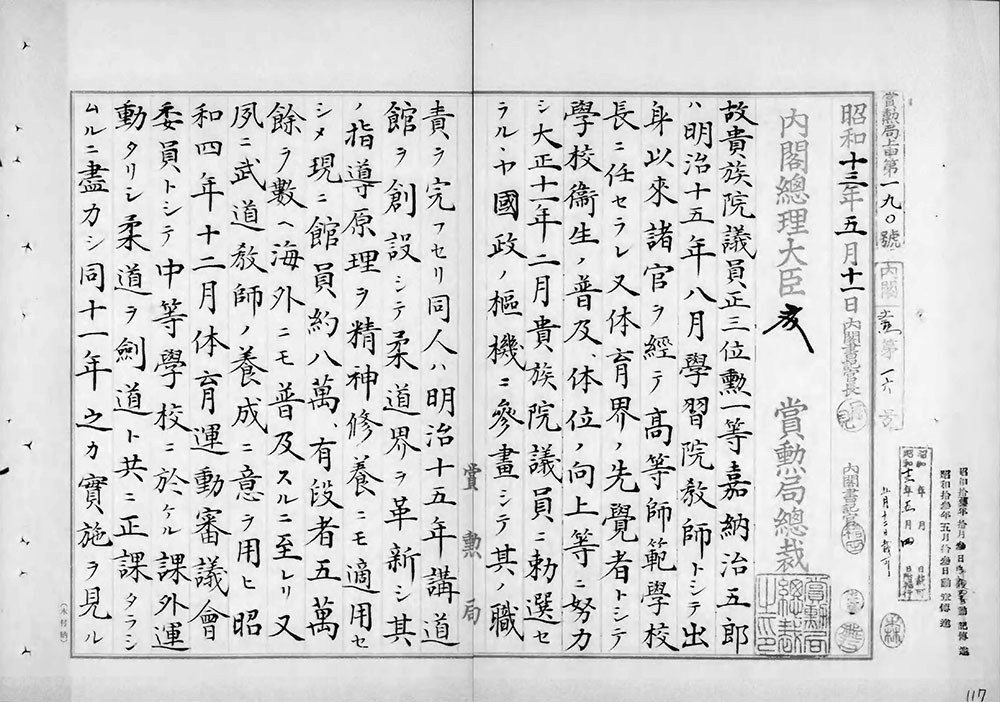 賞勲局上申第一九〇號
昭和十三年五月十一日
内閣書記官長
内閣書記官
内閣總理大臣
賞勲局總裁
故貴族院議員正三位勲一等嘉納治五郎
ハ明治十五年八月學習院教師トシテ出
身以來諸官ヲ經テ高等師範學校
長ニ任セラレ又体育界ノ先覺者トシテ
學校衞生ノ普及、体位ノ向上等ニ努力
シ大正十一年二月貴族院議員ニ勅選セ
ラルヽヤ國政ノ樞機ニ參畫シテ其ノ職
賞勲局
責ヲ完フセリ同人ハ明治十五年講道
館ヲ創設シテ柔道界ヲ革新シ其
ノ指導原理ヲ精神修養ニモ適用セ
シメ現ニ館員約八萬、有段者五萬
餘ヲ數ヘ海外ニモ普及スルニ至レリ又
夙ニ武道教師ノ養成ニ意ヲ用ヒ昭
和四年十二月体育運動審議會
委員トシテ中等學校ニ於ケル課外運
動タリシ柔道ヲ劍道ト共ニ正課タラシ
ムルニ盡力シ同十一年之カ實施ヲ見ル
117